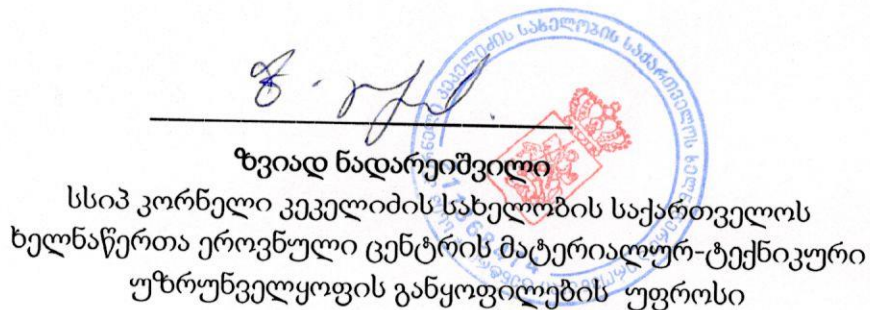 ზვიად ნადარეიშვილი
სსიპ კორნელი კეკელიძის სახელობის საქართველოს
ხელნაწერთა ეროვნული ცენტრის მატერიალურ-ტექნიკური
უზრუნველყოფის განყოფილების უფროსი